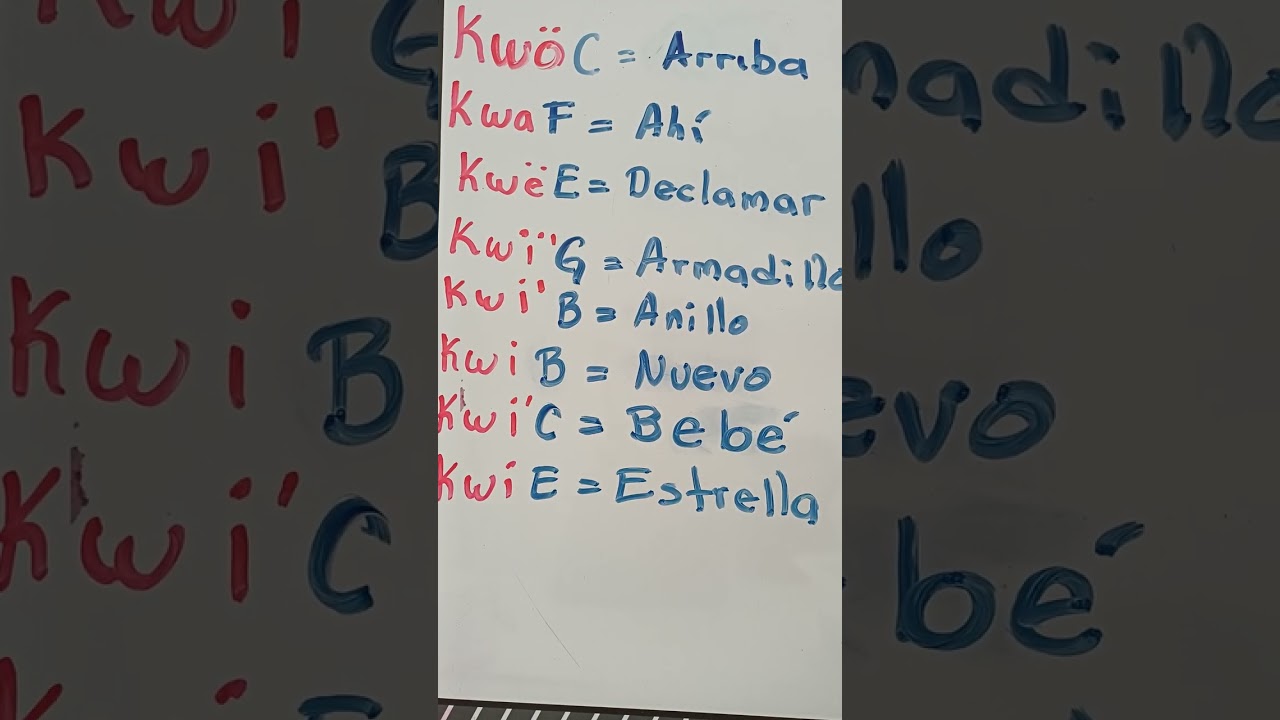 KwöC = Arriba
KwaF = Ahí
KwëE = Declamar
Kwï'G = Armadillo
Kwi'B = Anillo
KwiB = Nuevo
Kwi'C = Bebé
KwiE = Estrella